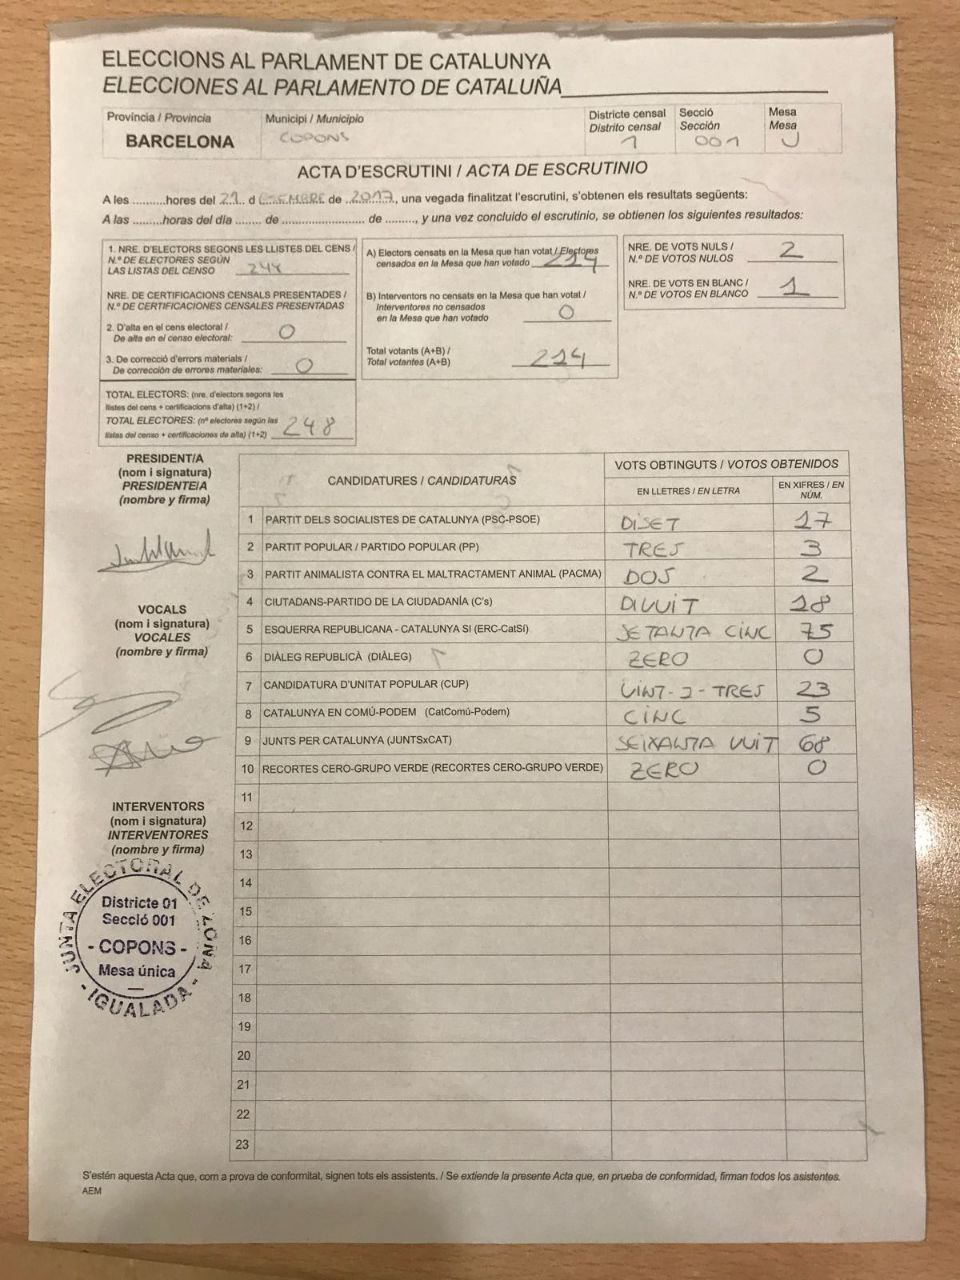 ELECCIONS AL PARLAMENT DE CATALUNYA
ELECCIONES AL PARLAMENTO DE CATALUÑA
Província / Provincia
BARCELONA
Municipi / Municipio
COPONS
Districte censal
Distrito censal
1
Secció
Sección
001
Mesa
Mesa
U
ACTA D'ESCRUTINI / ACTA DE ESCRUTINIO
A les ..........hores del .21.. d DESEMBRE de ..2017., una vegada finalitzat l'escrutini, s'obtenen els resultats següents:
A las .........horas del día ...... de ........................ de ........., y una vez concluido el escrutinio, se obtienen los siguientes resultados:
1. NRE. D'ELECTORS SEGONS LES LLISTES DEL CENS /
N.º DE ELECTORES SEGÚN
LAS LISTAS DEL CENSO 248
NRE. DE CERTIFICACIONS CENSALS PRESENTADES /
N.º DE CERTIFICACIONES CENSALES PRESENTADAS
2. D'alta en el cens electoral /
De alta en el censo electoral: 0
3. De correcció d'errors materials /
De corrección de errores materiales: 0
TOTAL ELECTORS: (nre. d'electors segons les
llistes del cens + certificacions d'alta) (1+2) /
TOTAL ELECTORES: (nº electores según las
listas del censo + certificaciones de alta) (1+2) 248
A) Electors censats en la Mesa que han votat / Electores
censados en la Mesa que han votado 214
B) Interventors no censats en la Mesa que han votat /
Interventores no censados
en la Mesa que han votado 0
Total votants (A+B) /
Total votantes (A+B) 214
NRE. DE VOTS NULS /
N.º DE VOTOS NULOS 2
NRE. DE VOTS EN BLANC /
N.º DE VOTOS EN BLANCO 1
PRESIDENT/A
(nom i signatura)
PRESIDENTE/A
(nombre y firma)
VOCALS
(nom i signatura)
VOCALES
(nombre y firma)
INTERVENTORS
(nom i signatura)
INTERVENTORES
(nombre y firma)
JUNTA ELECTORAL DE ZONA
Districte 01
Secció 001
- COPONS -
Mesa única
- IGUALADA -
CANDIDATURES / CANDIDATURAS
VOTS OBTINGUTS / VOTOS OBTENIDOS
EN LLETRES / EN LETRA
EN XIFRES / EN NÚM.
1 PARTIT DELS SOCIALISTES DE CATALUNYA (PSC-PSOE) DISET 17
2 PARTIT POPULAR / PARTIDO POPULAR (PP) TRES 3
3 PARTIT ANIMALISTA CONTRA EL MALTRACTAMENT ANIMAL (PACMA) DOS 2
4 CIUTADANS-PARTIDO DE LA CIUDADANÍA (C's) DIVUIT 18
5 ESQUERRA REPUBLICANA - CATALUNYA SI (ERC-CatSí) SETANTA CINC 75
6 DIÀLEG REPUBLICÀ (DIÀLEG) ZERO 0
7 CANDIDATURA D'UNITAT POPULAR (CUP) VINT-I-TRES 23
8 CATALUNYA EN COMÚ-PODEM (CatComú-Podem) CINC 5
9 JUNTS PER CATALUNYA (JUNTSxCAT) SEIXANTA VUIT 68
10 RECORTES CERO-GRUPO VERDE (RECORTES CERO-GRUPO VERDE) ZERO 0
11
12
13
14
15
16
17
18
19
20
21
22
23
S'estén aquesta Acta que, com a prova de conformitat, signen tots els assistents. / Se extiende la presente Acta que, en prueba de conformidad, firman todos los asistentes.
AEM